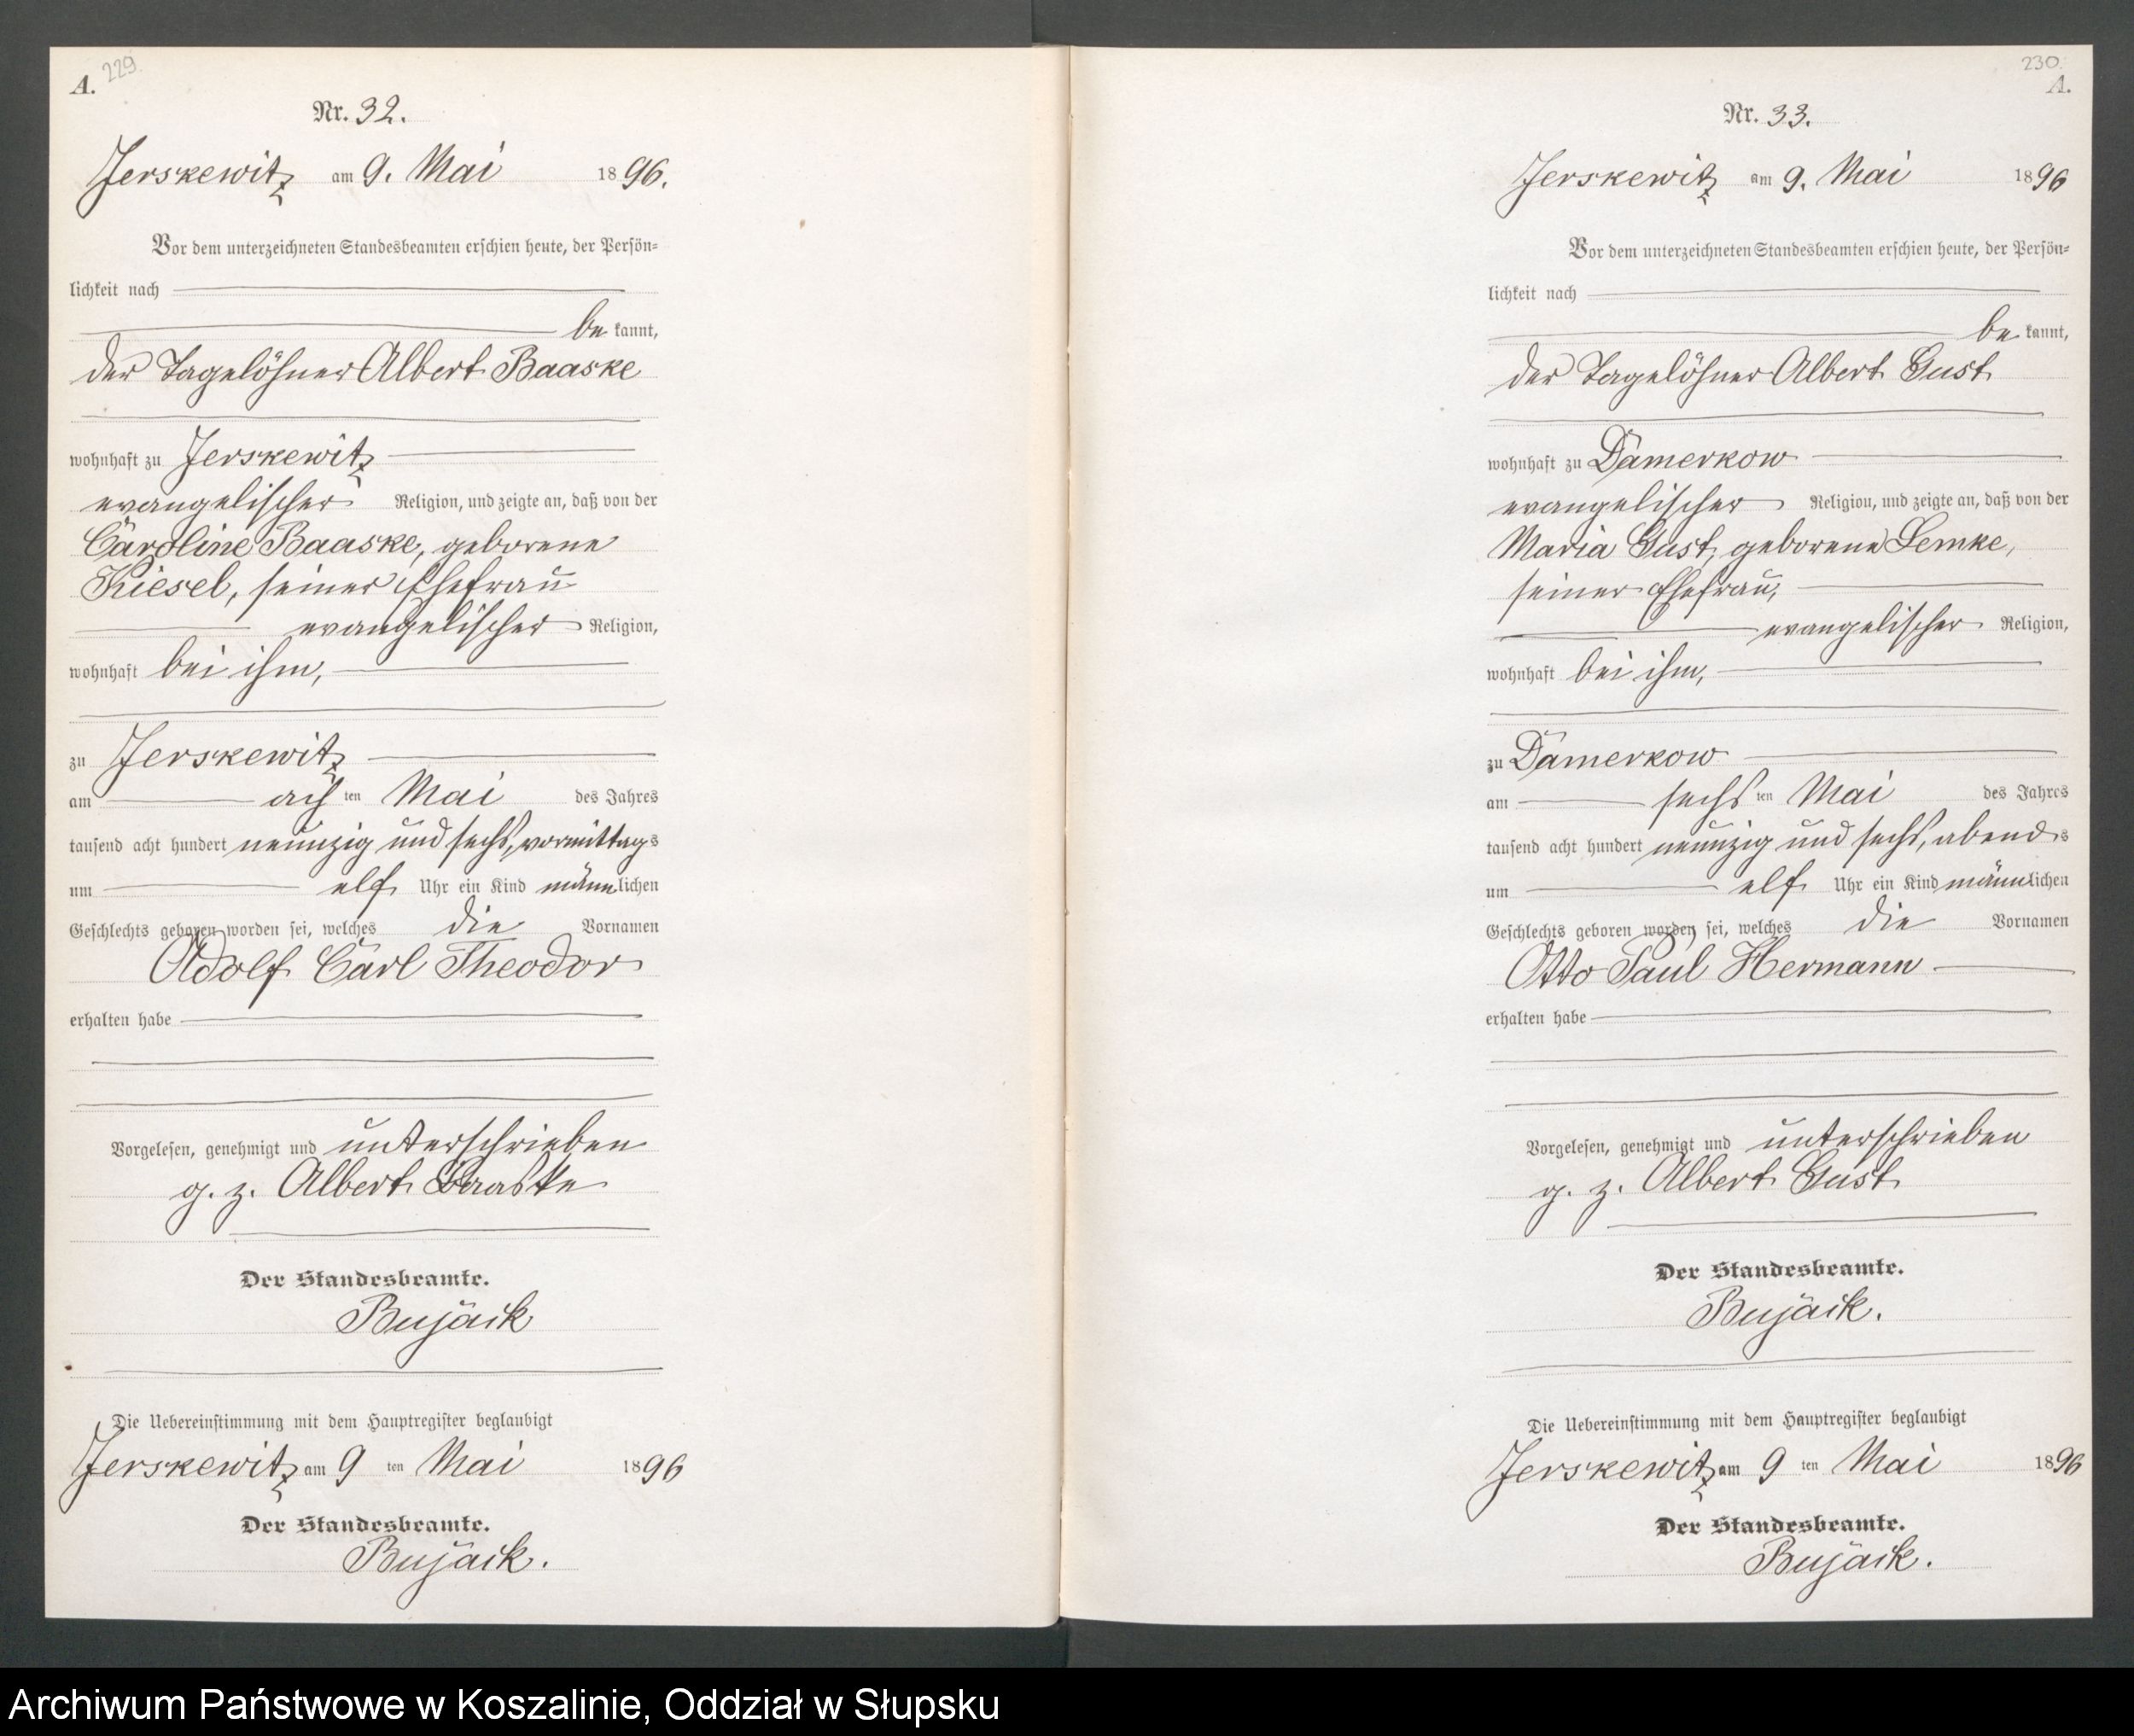 A. 229
Nr. 32.
Jerskewitz am 9. Mai 1896.
Vor dem unterzeichneten Standesbeamten erschien heute, der Persön=
lichkeit nach
be kannt,
der Tagelöhner Albert Baaske
wohnhaft zu Jerskewitz
evangelischer Religion, und zeigte an, daß von der
Caroline Baaske, geborene
Kiesel, seiner Ehefrau
evangelischer Religion,
wohnhaft bei ihm,
zu Jerskewitz
am achten Mai des Jahres
tausend acht hundert neunzig und sechs, vormittags
um elf Uhr ein Kind männlichen
Geschlechts geboren worden sei, welches die Vornamen
Adolf Carl Theodor
erhalten habe
Vorgelesen, genehmigt und unterschrieben
g. z. Albert Baaske
Der Standesbeamte.
Bujack
Die Uebereinstimmung mit dem Hauptregister beglaubigt
Jerskewitz am 9 ten Mai 1896
Der Standesbeamte.
Bujack.
230.
A.
Nr. 33.
Jerskewitz am 9. Mai 1896
Vor dem unterzeichneten Standesbeamten erschien heute, der Persön=
lichkeit nach
be kannt,
der Tagelöhner Albert Gust
wohnhaft zu Damerkow
evangelischer Religion, und zeigte an, daß von der
Maria Gust, geborene Lemke,
seiner Ehefrau,
evangelischer Religion,
wohnhaft bei ihm,
zu Damerkow
am sechsten Mai des Jahres
tausend acht hundert neunzig und sechs, abends
um elf Uhr ein Kind männlichen
Geschlechts geboren worden sei, welches die Vornamen
Otto Paul Hermann
erhalten habe
Vorgelesen, genehmigt und unterschrieben
g. z. Albert Gust
Der Standesbeamte.
Bujack.
Die Uebereinstimmung mit dem Hauptregister beglaubigt
Jerskewitz am 9 ten Mai 1896
Der Standesbeamte.
Bujack.
Archiwum Państwowe w Koszalinie, Oddział w Słupsku